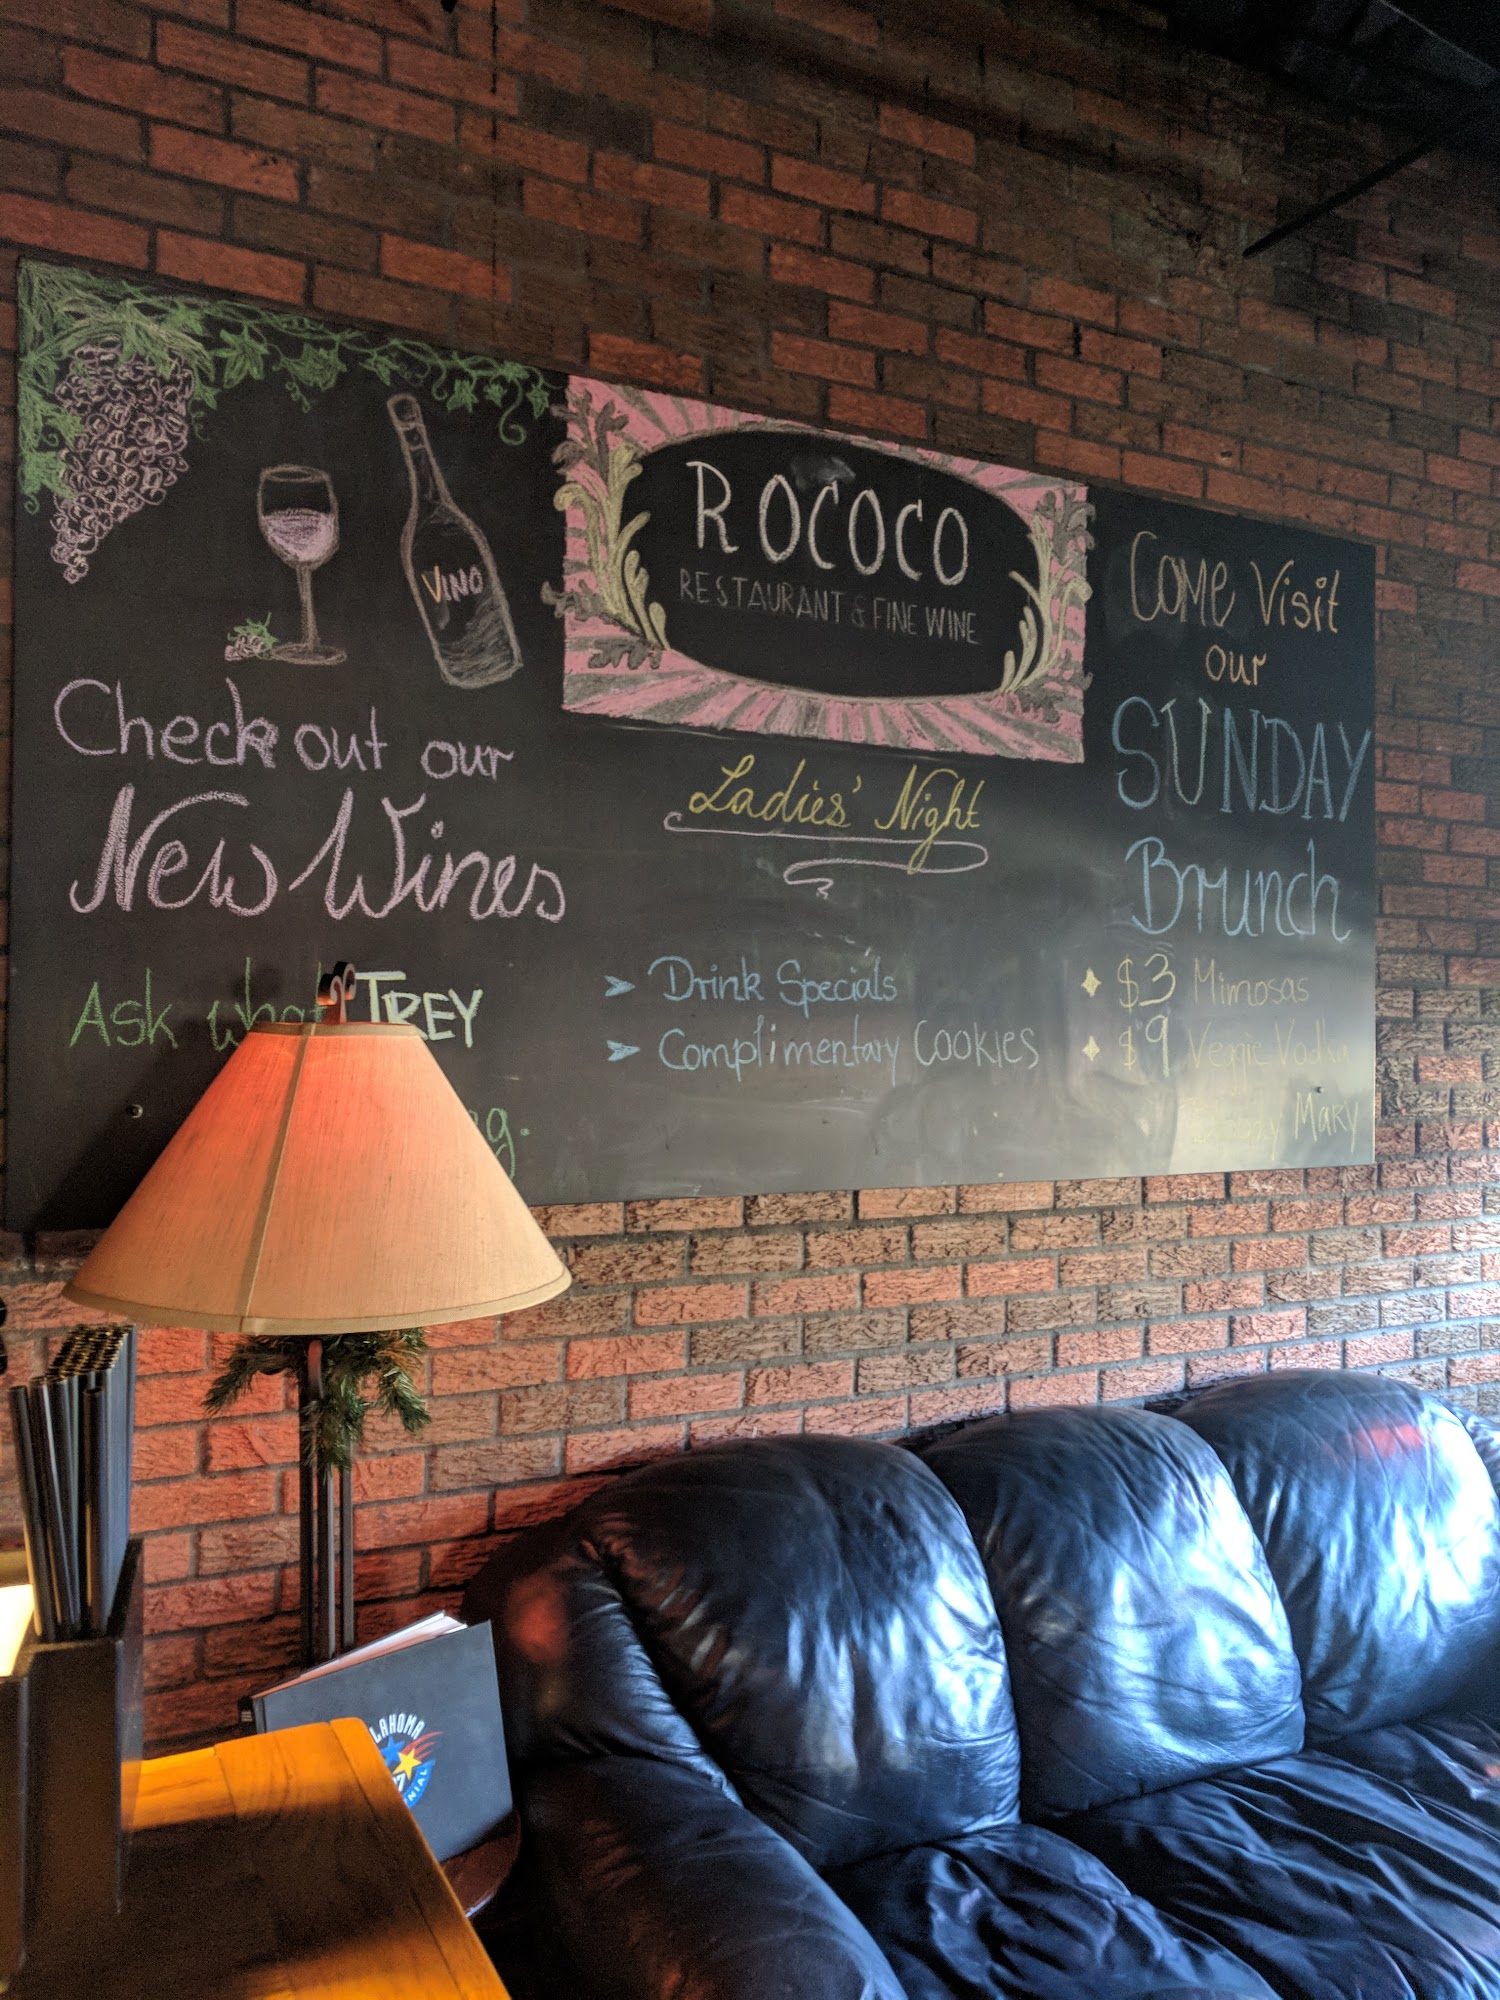 VINO
Check out our
New Wines
Ask what TREY
ROCOCO
RESTAURANT & FINE WINE
Ladies' Night
➤ Drink Specials
➤ Complimentary COOKIES
COME Visit
our
SUNDAY
Brunch
♦ $3 Mimosas
♦ $9 Veggie Vodka
Bloody MARY